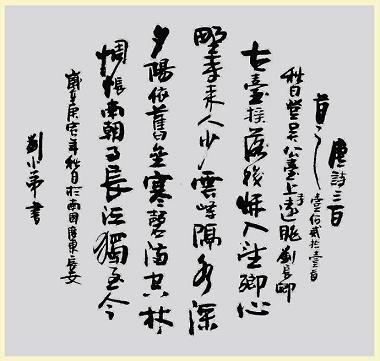 唐詩三百
首之一壹佰贰拾壹首
秋日登吴公臺上寺遠眺劉長卿
古臺摇落後秋入望鄉心
野寺來人少雲峰隔水深
夕陽依舊壘寒磬滿空林
惆悵南朝事長江獨至今
歲在庚寅年秋日於南國廣東
劉小書